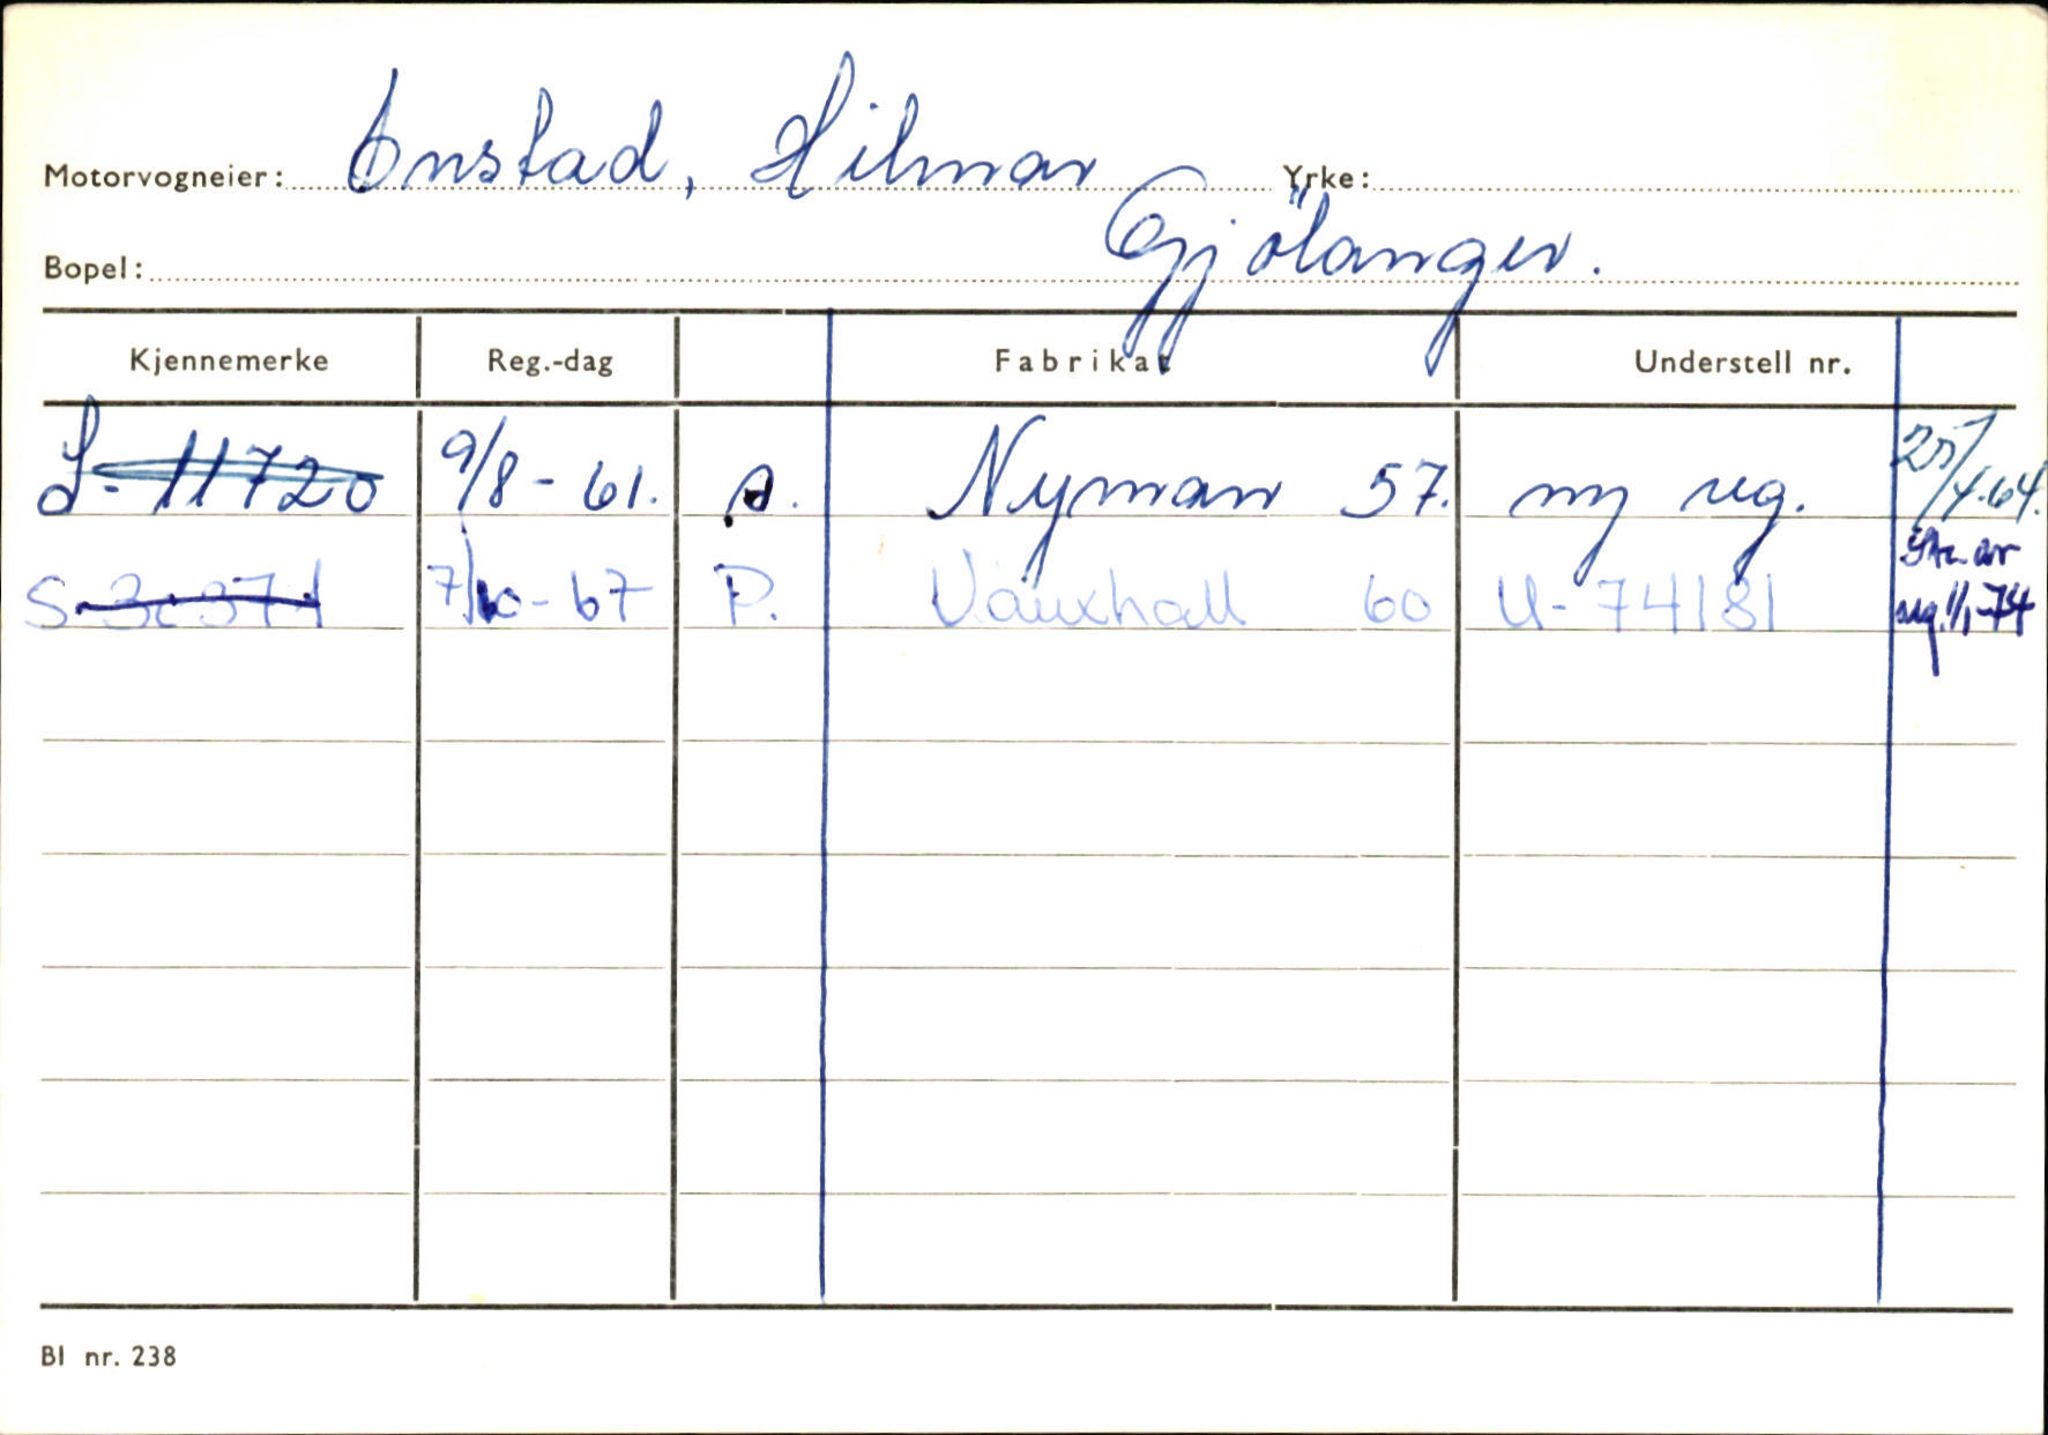 Motorvogneier: Onstad, Hilmar Yrke:
Bopel: Gjölanger.
Kjennemerke Reg.-dag Fabrikat Understell nr.
S-11720 9/8-61. Nyman 57. ny reg. 25/4-64.
S-30371 7/10-67 P. Vauxhall 60 U-74181 av reg. 1/1-74
Bl nr. 238